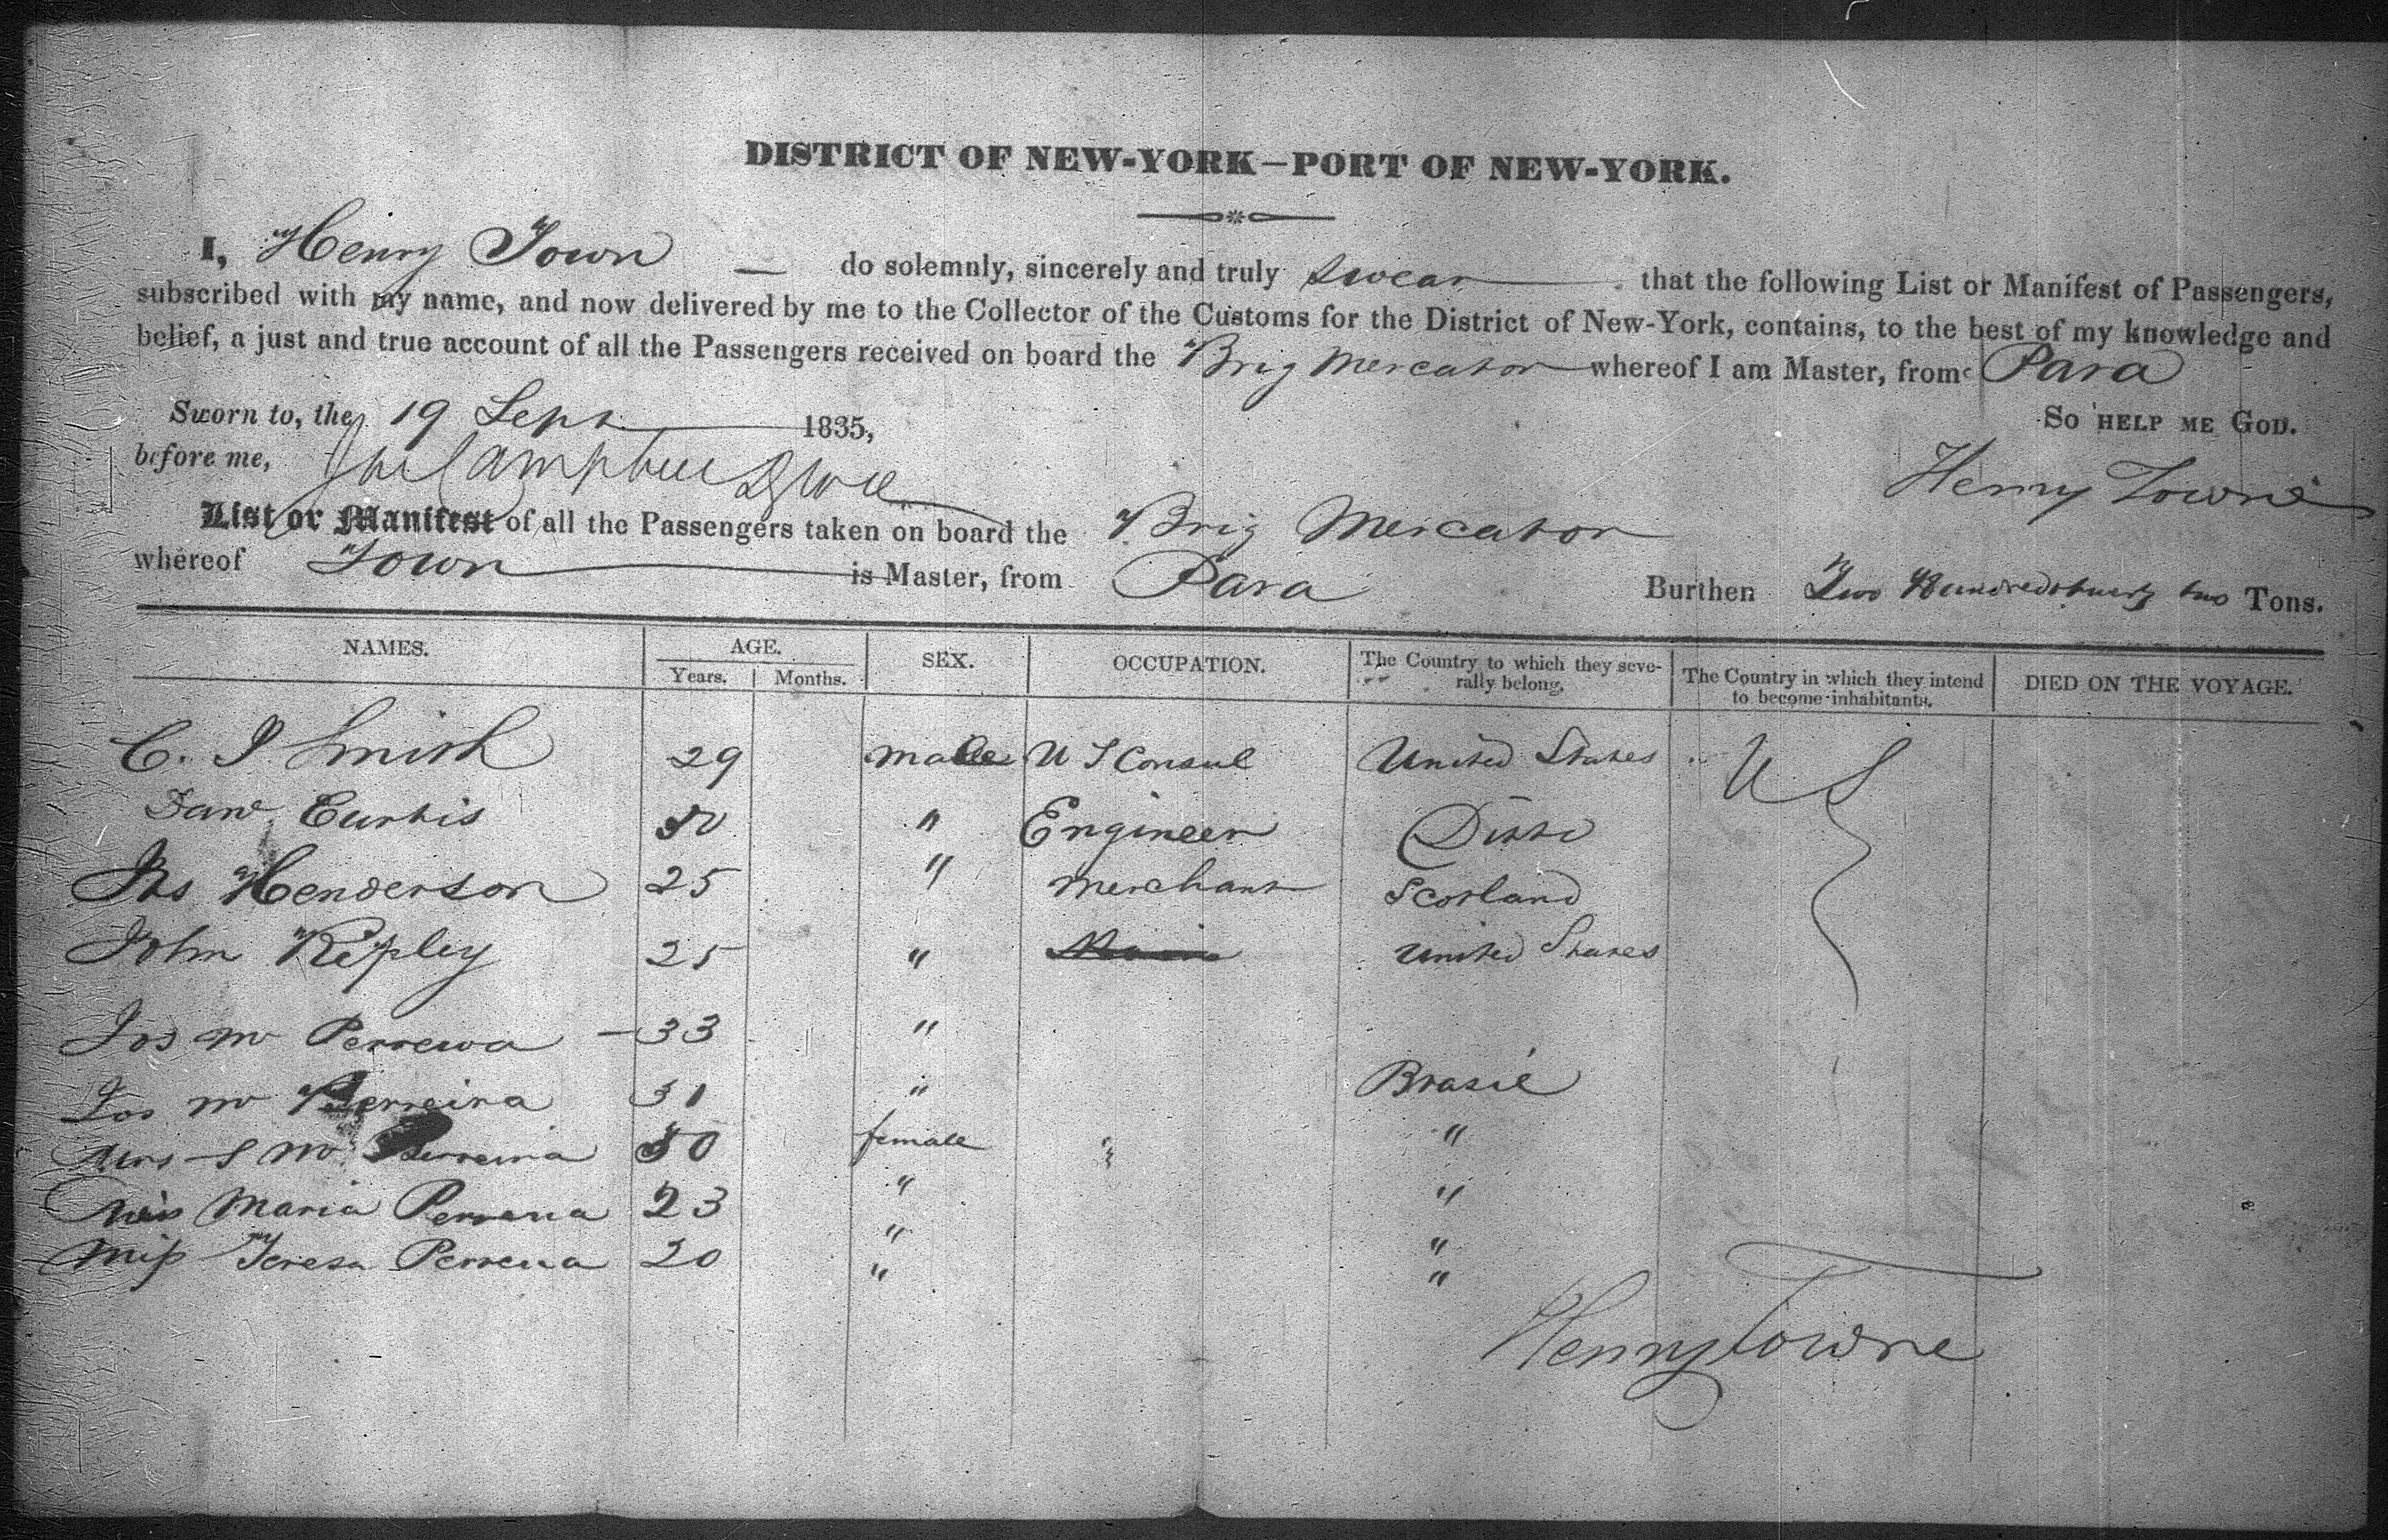 DISTRICT OF NEW-YORK—PORT OF NEW-YORK.
I, Henry Town — do solemnly, sincerely and truly swear that the following List or Manifest of Passengers,
subscribed with my name, and now delivered by me to the Collector of the Customs for the District of New-York, contains, to the best of my knowledge and
belief, a just and true account of all the Passengers received on board the Brig Mercator whereof I am Master, from Para
Sworn to, the 19 Sept 1835, So HELP ME GOD.
before me, Campbell Henry Towne
List or Manifest of all the Passengers taken on board the Brig Mercator
whereof Town is Master, from Para Burthen Two Hundred twenty two Tons.
NAMES. AGE. Years. Months. SEX. OCCUPATION. The Country to which they severally belong. The Country in which they intend to become inhabitants. DIED ON THE VOYAGE.
C. J Smith 29 male U S Consul United States U S
Curtis " Engineer Ditto
Henderson 25 " Merchant Scotland
John Ripley 25 " United States
Jos M Perreira 33 "
Jos M Perreira 31 " Brasil
Mrs S M Perreira 30 female " "
Miss Maria Perreira 23 " "
Miss Teresa Perreira 20 " "
" "
Henry Towne